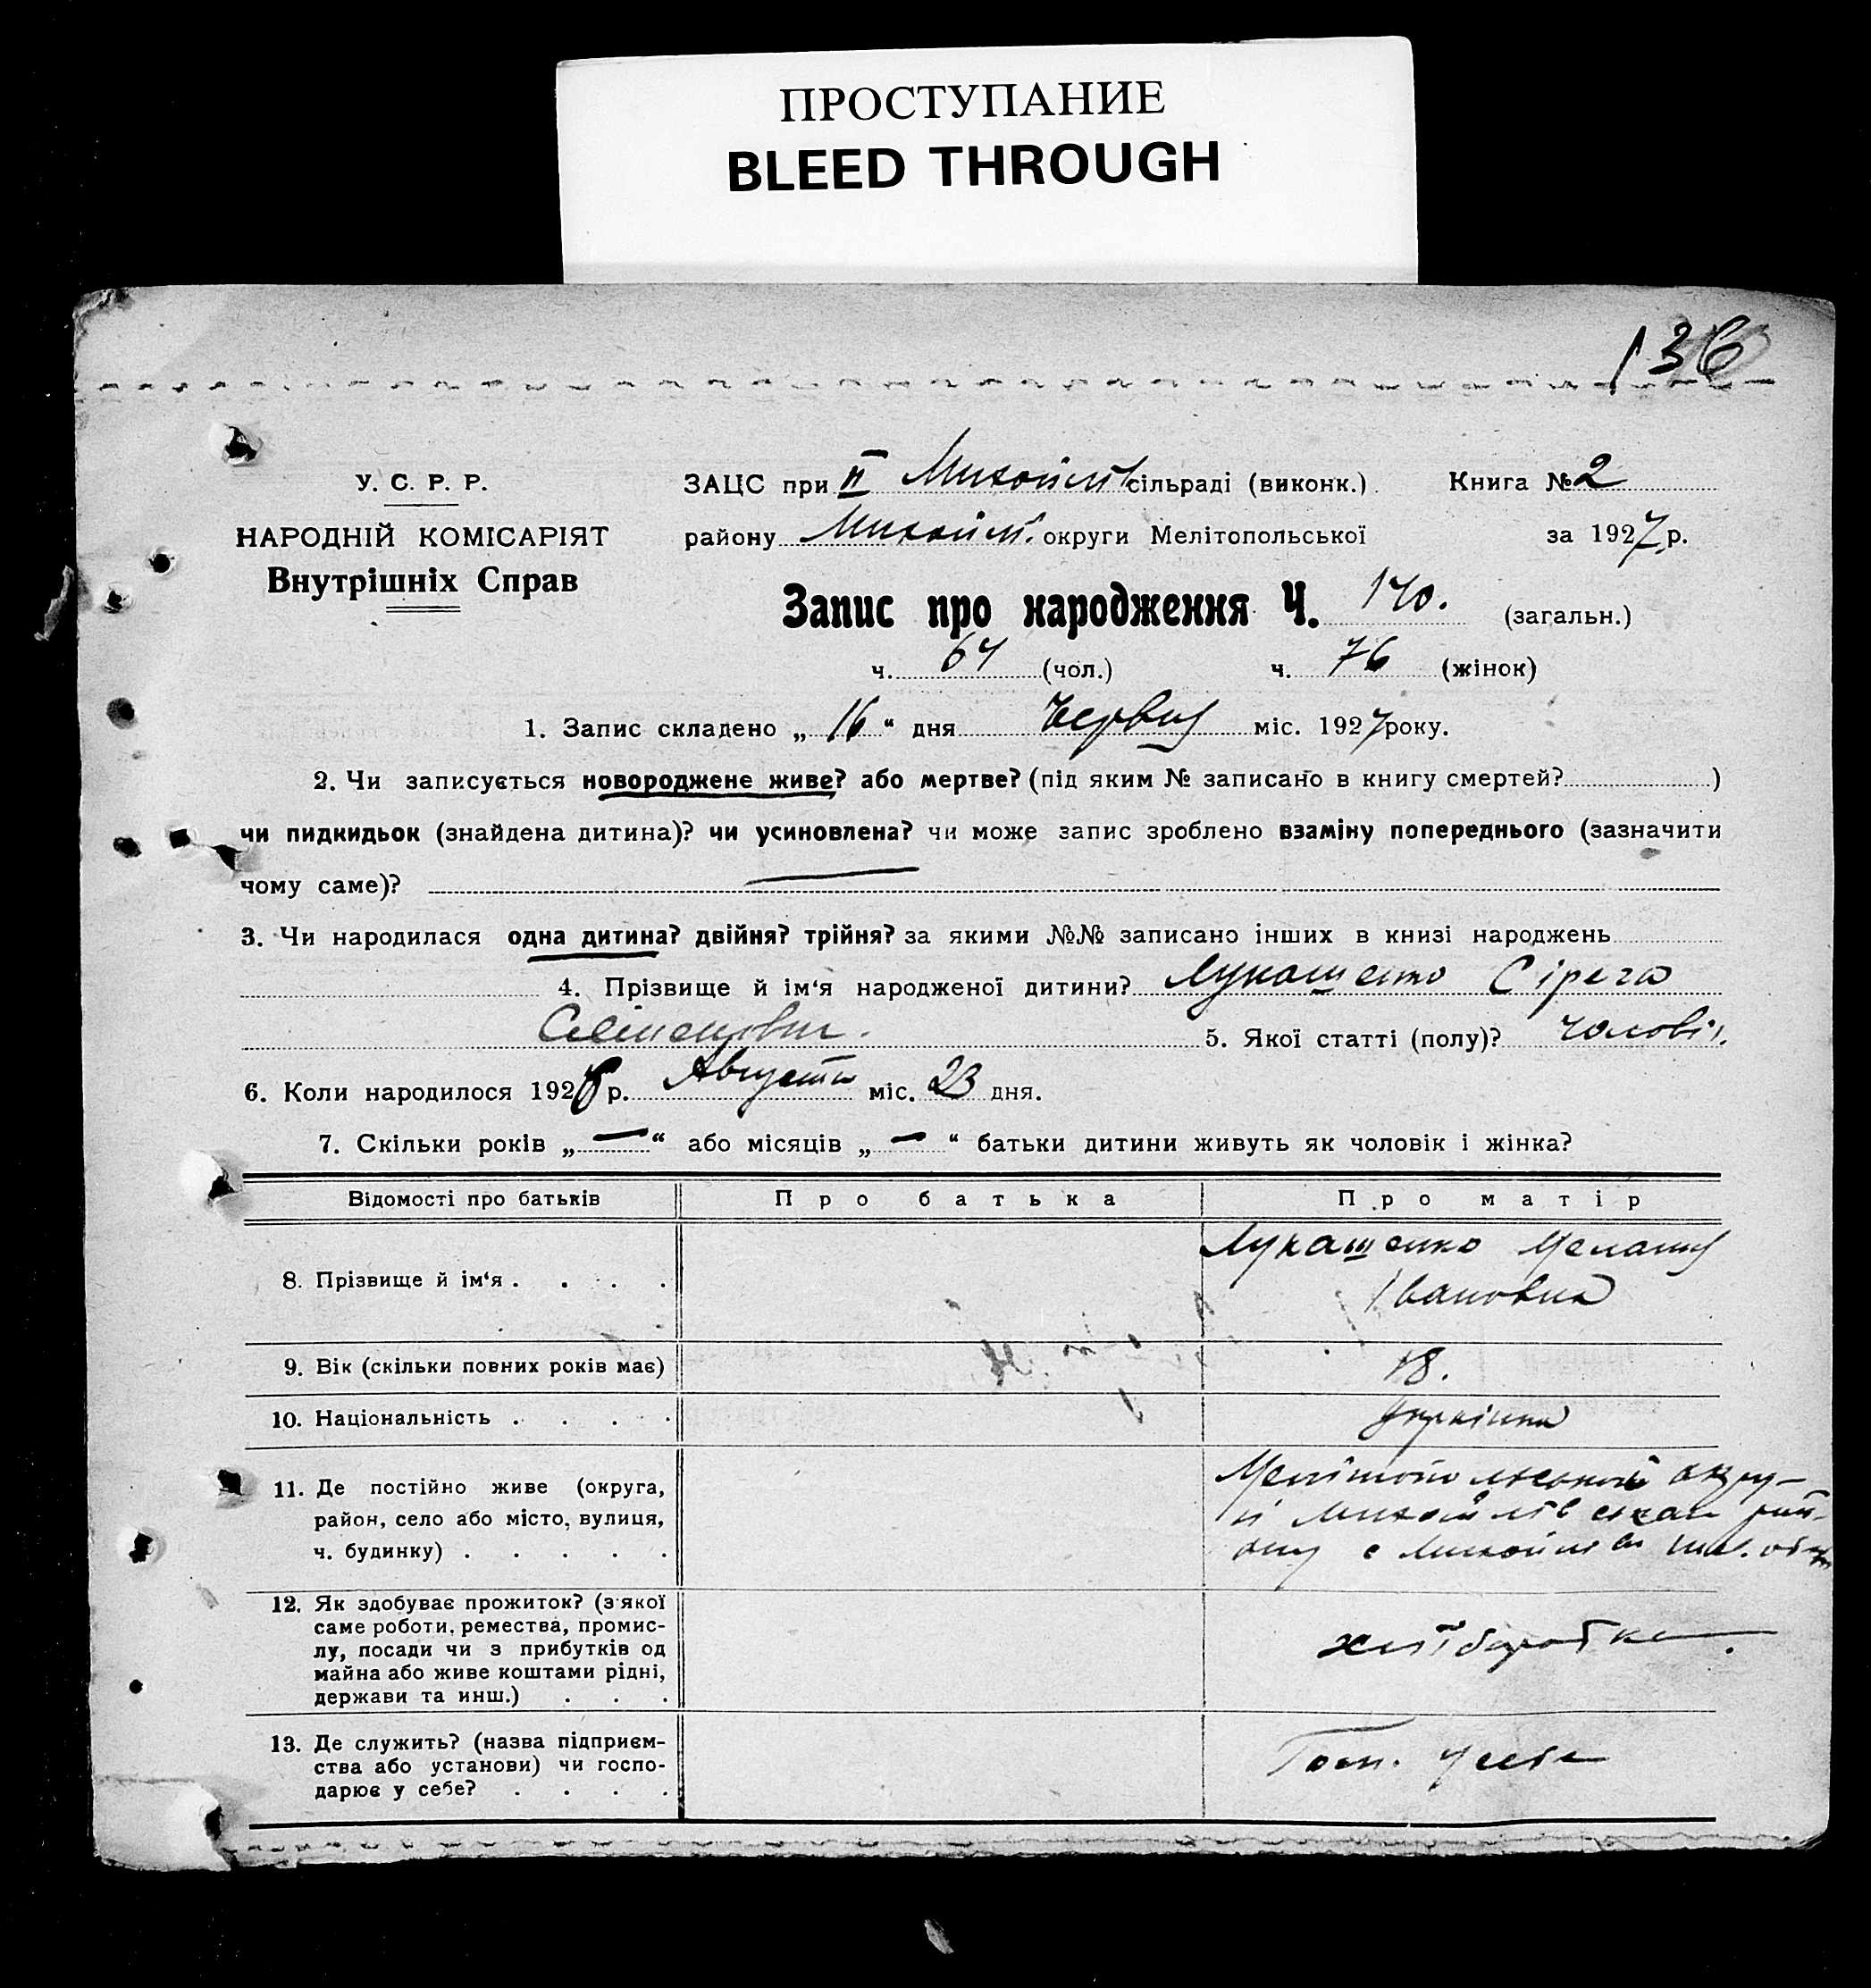 ПРОСТУПАНИЕ
BLEED THROUGH
136
У. С. Р. Р.
НАРОДНІЙ КОМІСАРІЯТ
Внутрішніх Справ
ЗАЦС при ІІ Михайлів сільраді (виконк.). Книга № 2
району Михайлів. округи Мелітопольської за 1927 р.
Запис про народження Ч. 140. (загальн.)
ч. 64 (чол.) ч. 76 (жінок)
1. Запис складено „ 16 “ дня Червня міс. 1927 року.
2. Чи записується новороджене живе? або мертве? (під яким № записано в книгу смертей? )
чи пидкидьок (знайдена дитина)? чи усиновлена? чи може запис зроблено взаміну попереднього (зазначити
чому саме)?
3. Чи народилася одна дитина? двійня? трійня? за якими №№ записано інших в книзі народжень
4. Прізвище й ім‘я народженої дитини? Лукашенко Сірега
Семенович. 5. Якої статті (полу)? чоловіч.
6. Коли народилося 1926 р. Августа міс. 23 дня.
7. Скільки років „ — “ або місяців „ — “ батьки дитини живуть як чоловік і жінка?
Відомості про батьків Про батька Про матір
8. Прізвище й ім‘я . . . . Лукашенко Меланія
Івановна
9. Вік (скільки повних років має) 18.
10. Національність . . . . Українка
11. Де постійно живе (округа,
район, село або місто, вулиця,
ч. будинку) . . . . .
Мелітопольської окру-
ги Михайлівської рай-
ону с Михайлівка
12. Як здобуває прожиток? (з якої
саме роботи, ремества, промис-
лу, посади чи з прибутків од
майна або живе коштами рідні,
держави та инш.) . . .
хліборобка.
13. Де служить? (назва підприєм-
ства або установи) чи госпо-
дарює у себе? . . . .
Госп. у себе